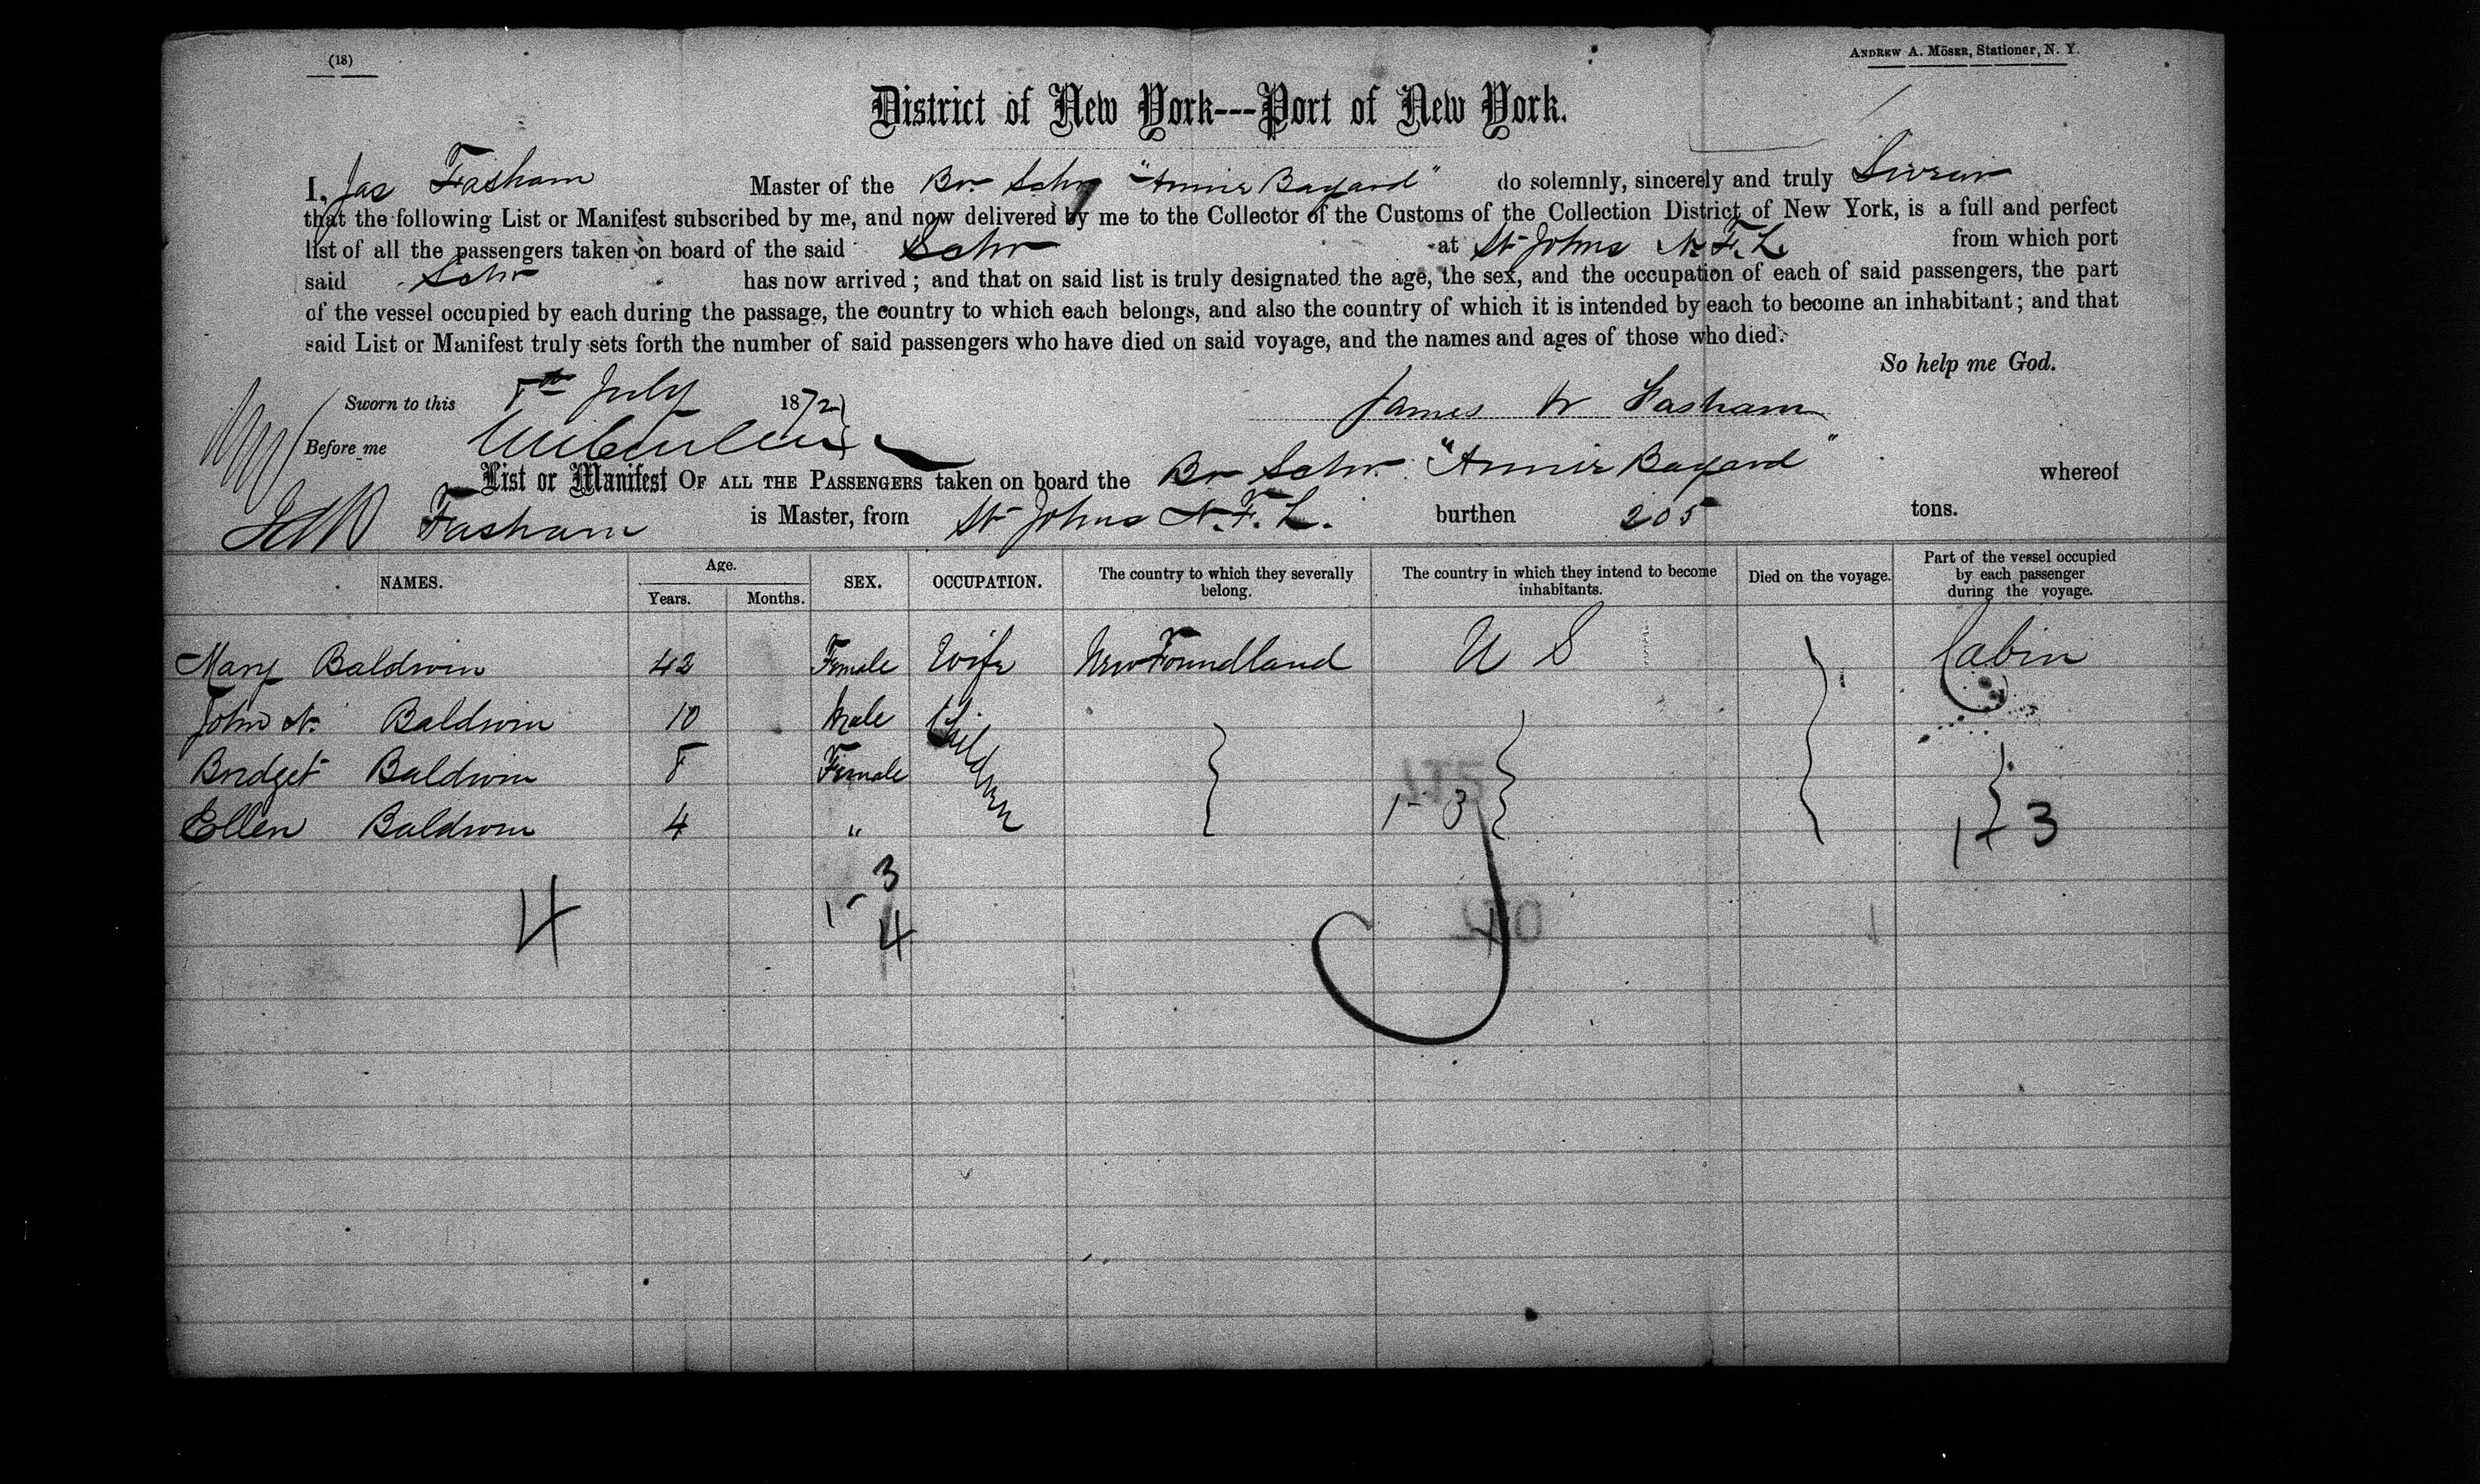 (18)
ANDREW A. MÖSER, Stationer, N. Y.
District of New York---Port of New York.
I, Jas Fasham Master of the Br. Schr "Annie Bayard" do solemnly, sincerely and truly Swear
that the following List or Manifest subscribed by me, and now delivered by me to the Collector of the Customs of the Collection District of New York, is a full and perfect
list of all the passengers taken on board of the said Schr at St Johns N. F. L. from which port
said Schr has now arrived; and that on said list is truly designated the age, the sex, and the occupation of each of said passengers, the part
of the vessel occupied by each during the passage, the country to which each belongs, and also the country of which it is intended by each to become an inhabitant; and that
said List or Manifest truly sets forth the number of said passengers who have died on said voyage, and the names and ages of those who died.
So help me God.
Sworn to this 8th July 1872
James W Fasham
Before me
List or Manifest OF ALL THE PASSENGERS taken on board the Br Schr. "Annie Bayard" whereof
Fasham is Master, from St Johns N. F. L. burthen 205 tons.
NAMES. Age. Years. Months. SEX. OCCUPATION. The country to which they severally belong. The country in which they intend to become inhabitants. Died on the voyage. Part of the vessel occupied by each passenger during the voyage.
Mary Baldwin 42 Female Wife NewFoundland U S Cabin
John N. Baldwin 10 Male Children
Bridget Baldwin 8 Female
Ellen Baldwin 4 " 1-3 1 + 3
3
4 1- 4